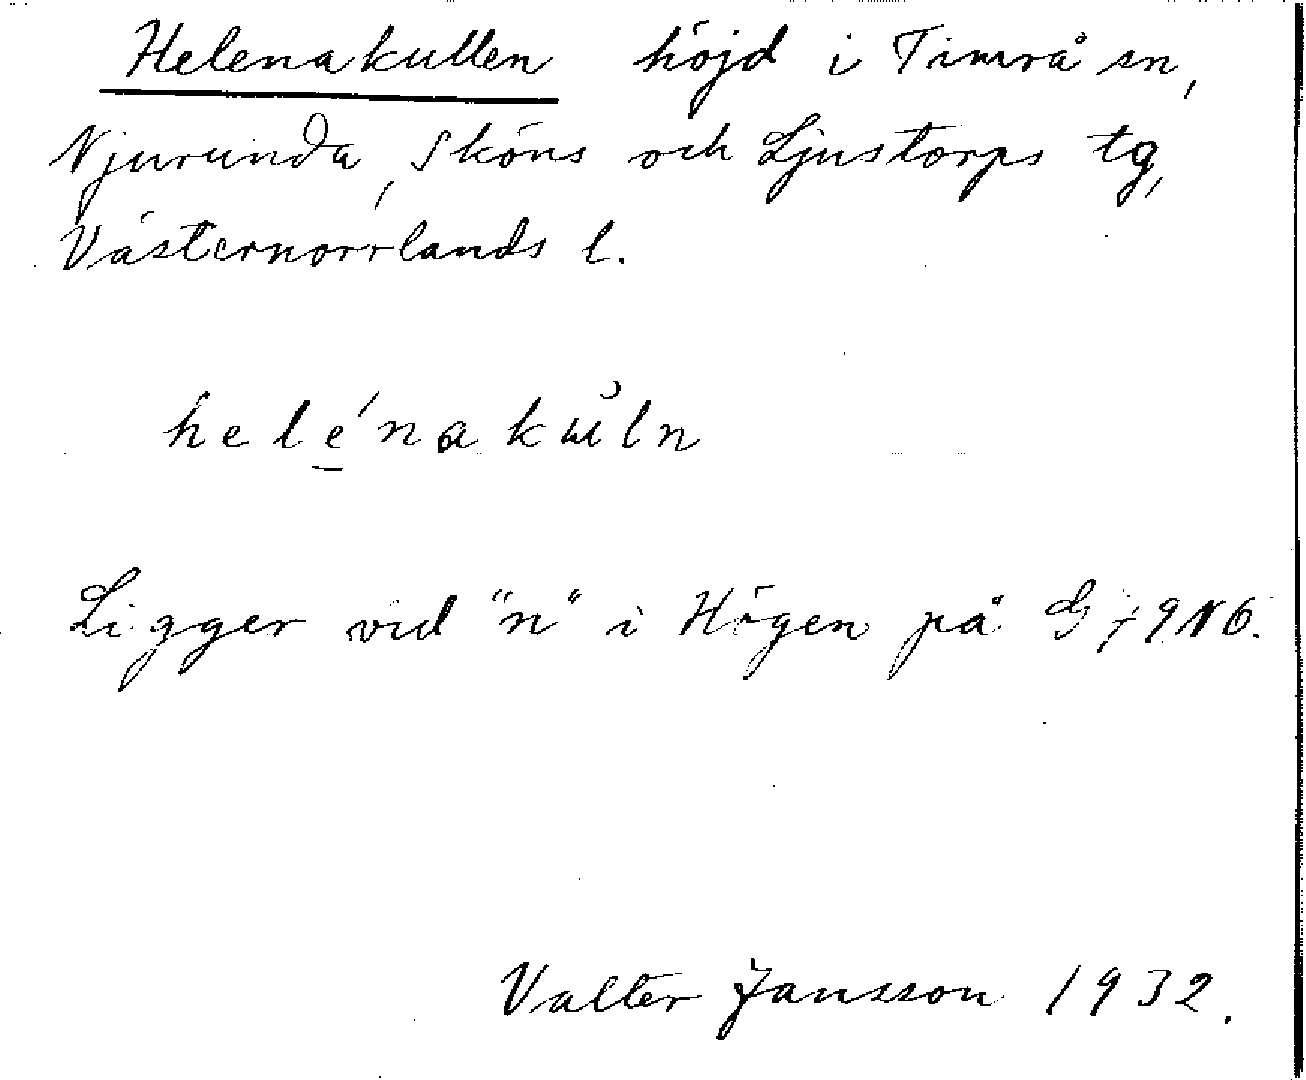 Helenakullen höjd i Timrå sn,
Njurunda, Sköns och Ljustorps tg,
Västernorrlands l.
helénakŭln
Ligger vid "n" i Högen på
Valter Jansson 1932.